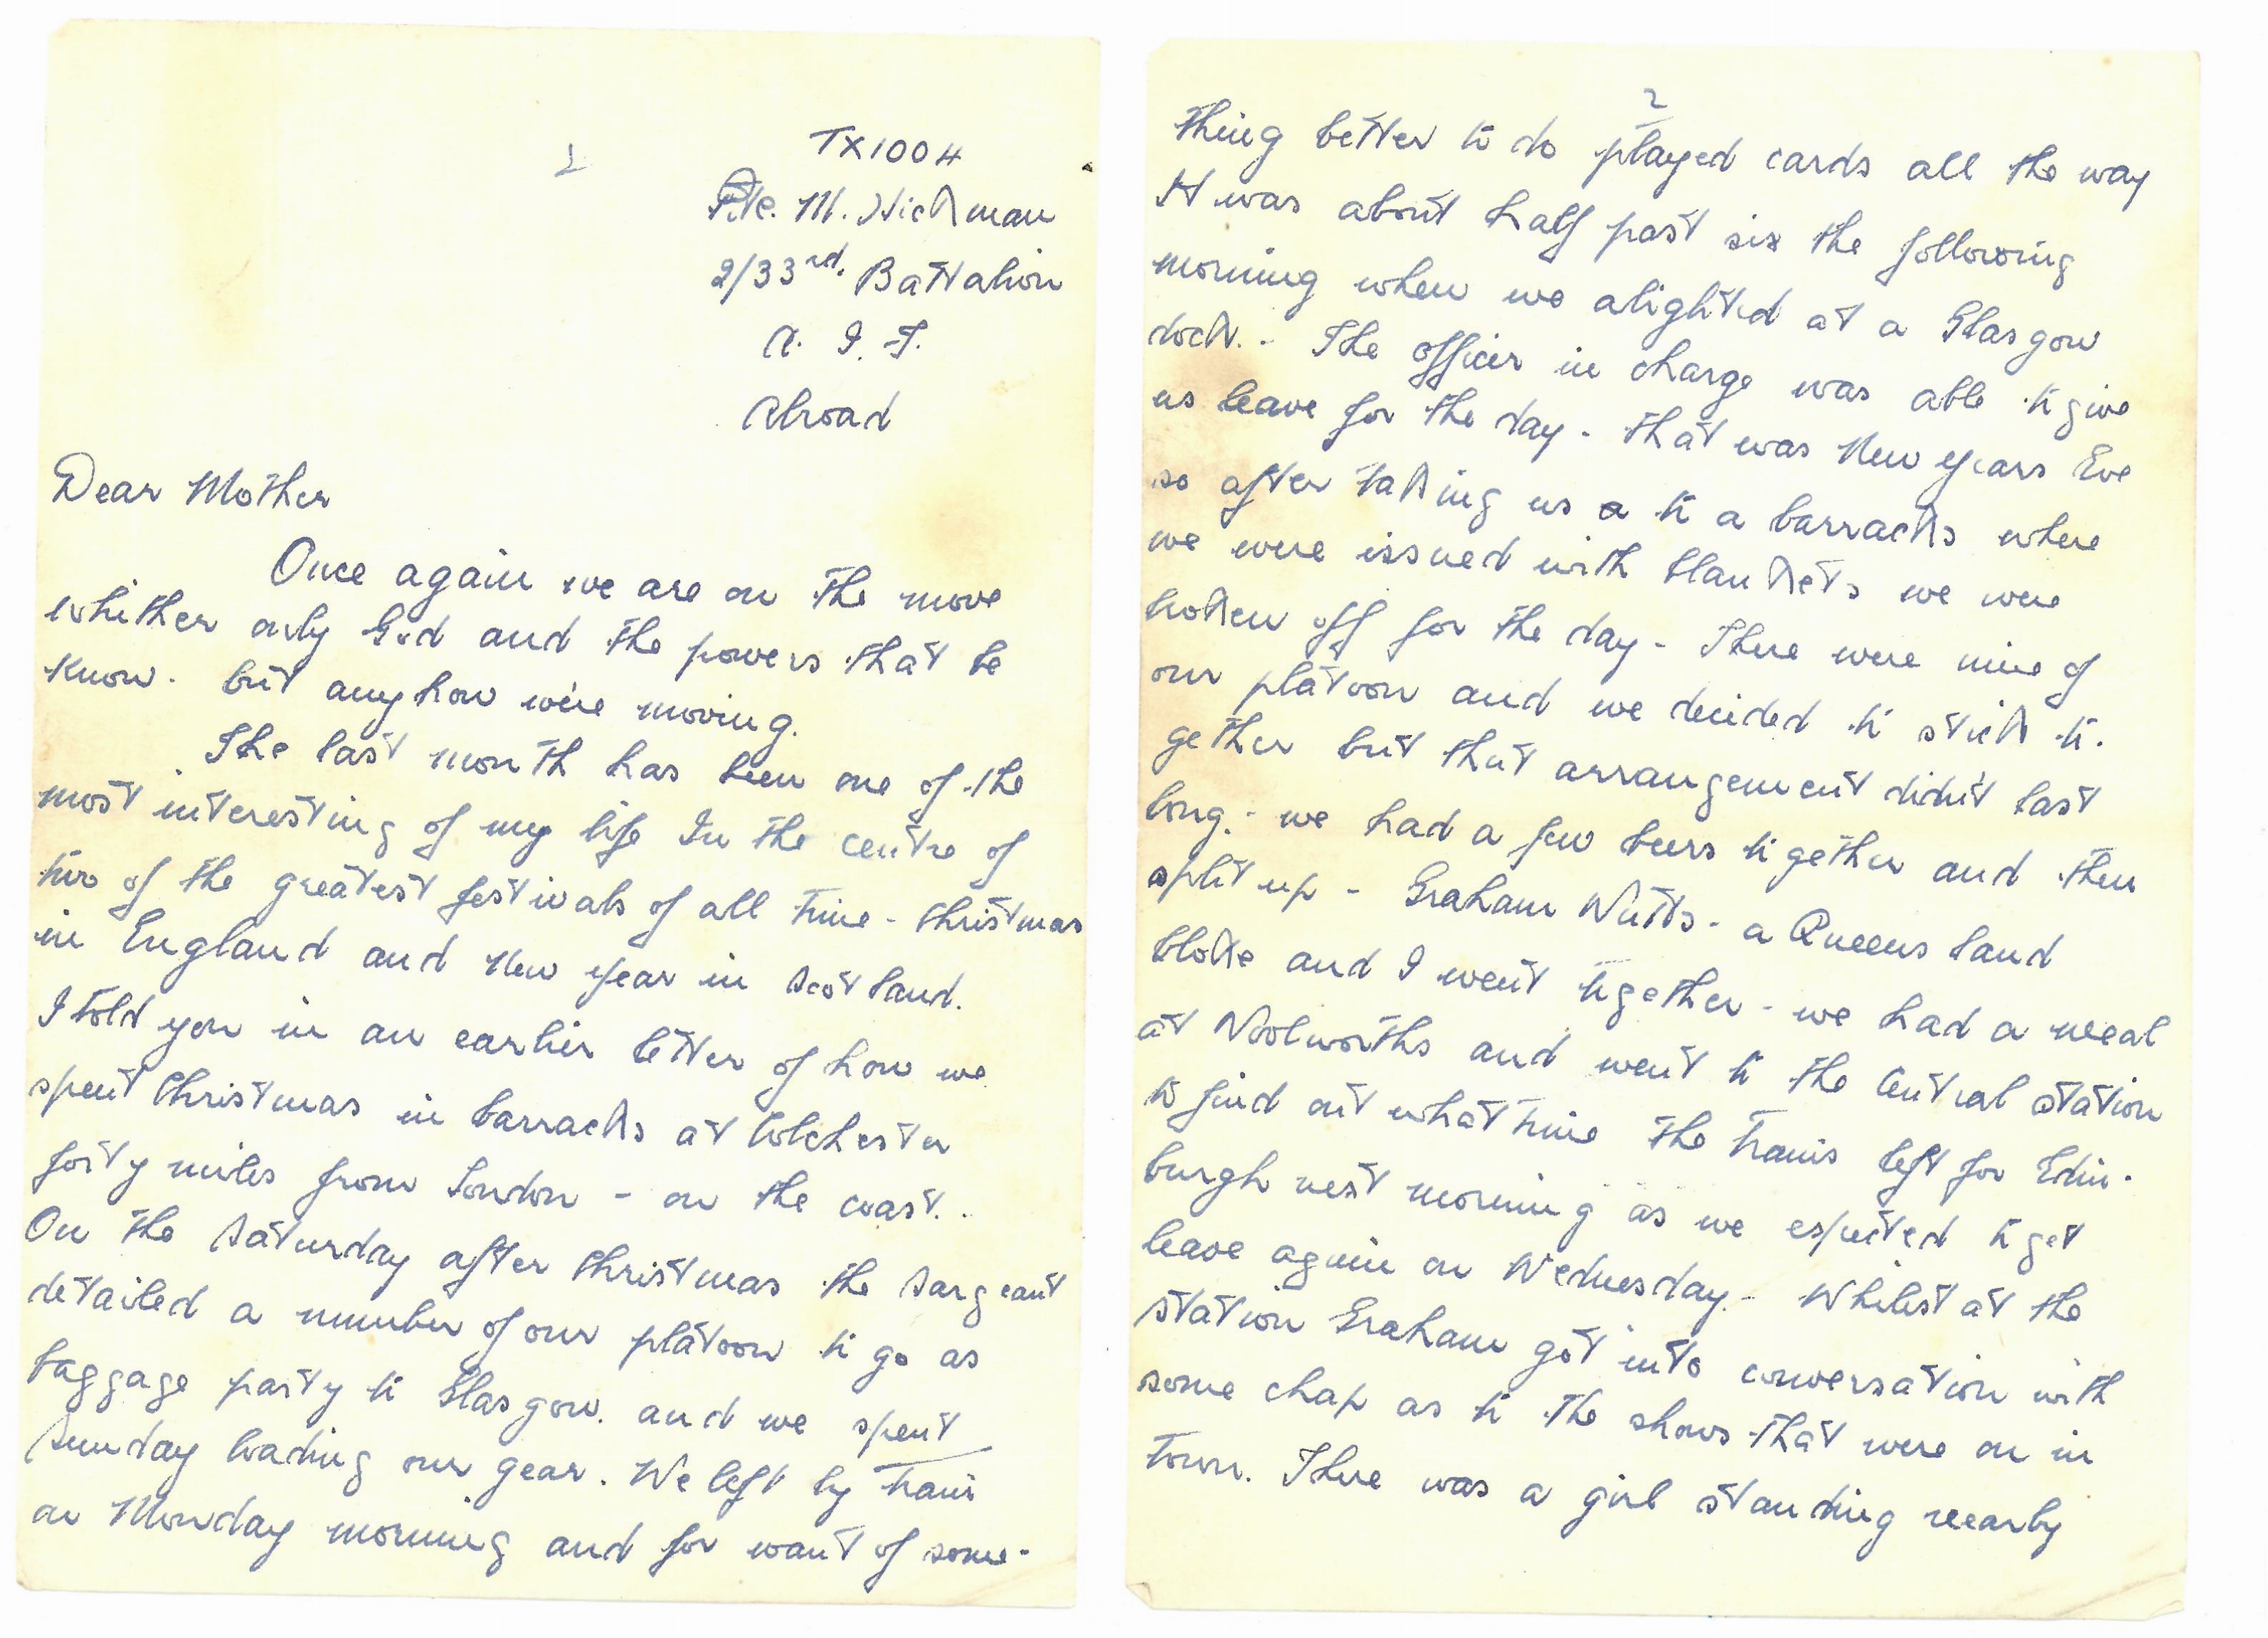 1
TX1004
Pte. M. Hickman
2/33rd. Battalion
A. I. F.
Abroad
Dear Mother
Once again we are on the move
whither only God and the powers that be
know. but anyhow we're moving.
The last month has been one of the
most interesting of my life In the centre of
two of the greatest festivals of all time - Christmas
in England and New Year in Scotland.
I told you in an earlier letter of how we
spent Christmas in barracks at Colchester
forty miles from London - on the coast..
On the Saturday after Christmas the Sargeant
detailed a number of our platoon to go as
baggage party to Glasgow. and we spent
Sunday loading our gear. We left by train
on Monday morning and for want of some-
2
thing better to do played cards all the way
It was about half past six the following
morning when we alighted at a Glasgow
dock. - The officer in charge was able to give
us leave for the day - that was New Years Eve
so after taking us a to a barracks where
we were issued with blankets we were
broken off for the day - There were nine of
our platoon and we decided to stick to-
gether but that arrangement didn't last
long. - we had a few beers together and then
split up - Graham Watts - a Queensland
bloke and I went together - we had a meal
at Woolworths and went to the Central station
to find out what time the trains left for Edin-
burgh next morning as we expected to get
leave again on Wednesday. - Whilest at the
station Graham got into conversation with
some chap as to the shows that were on in
town. There was a girl standing nearby